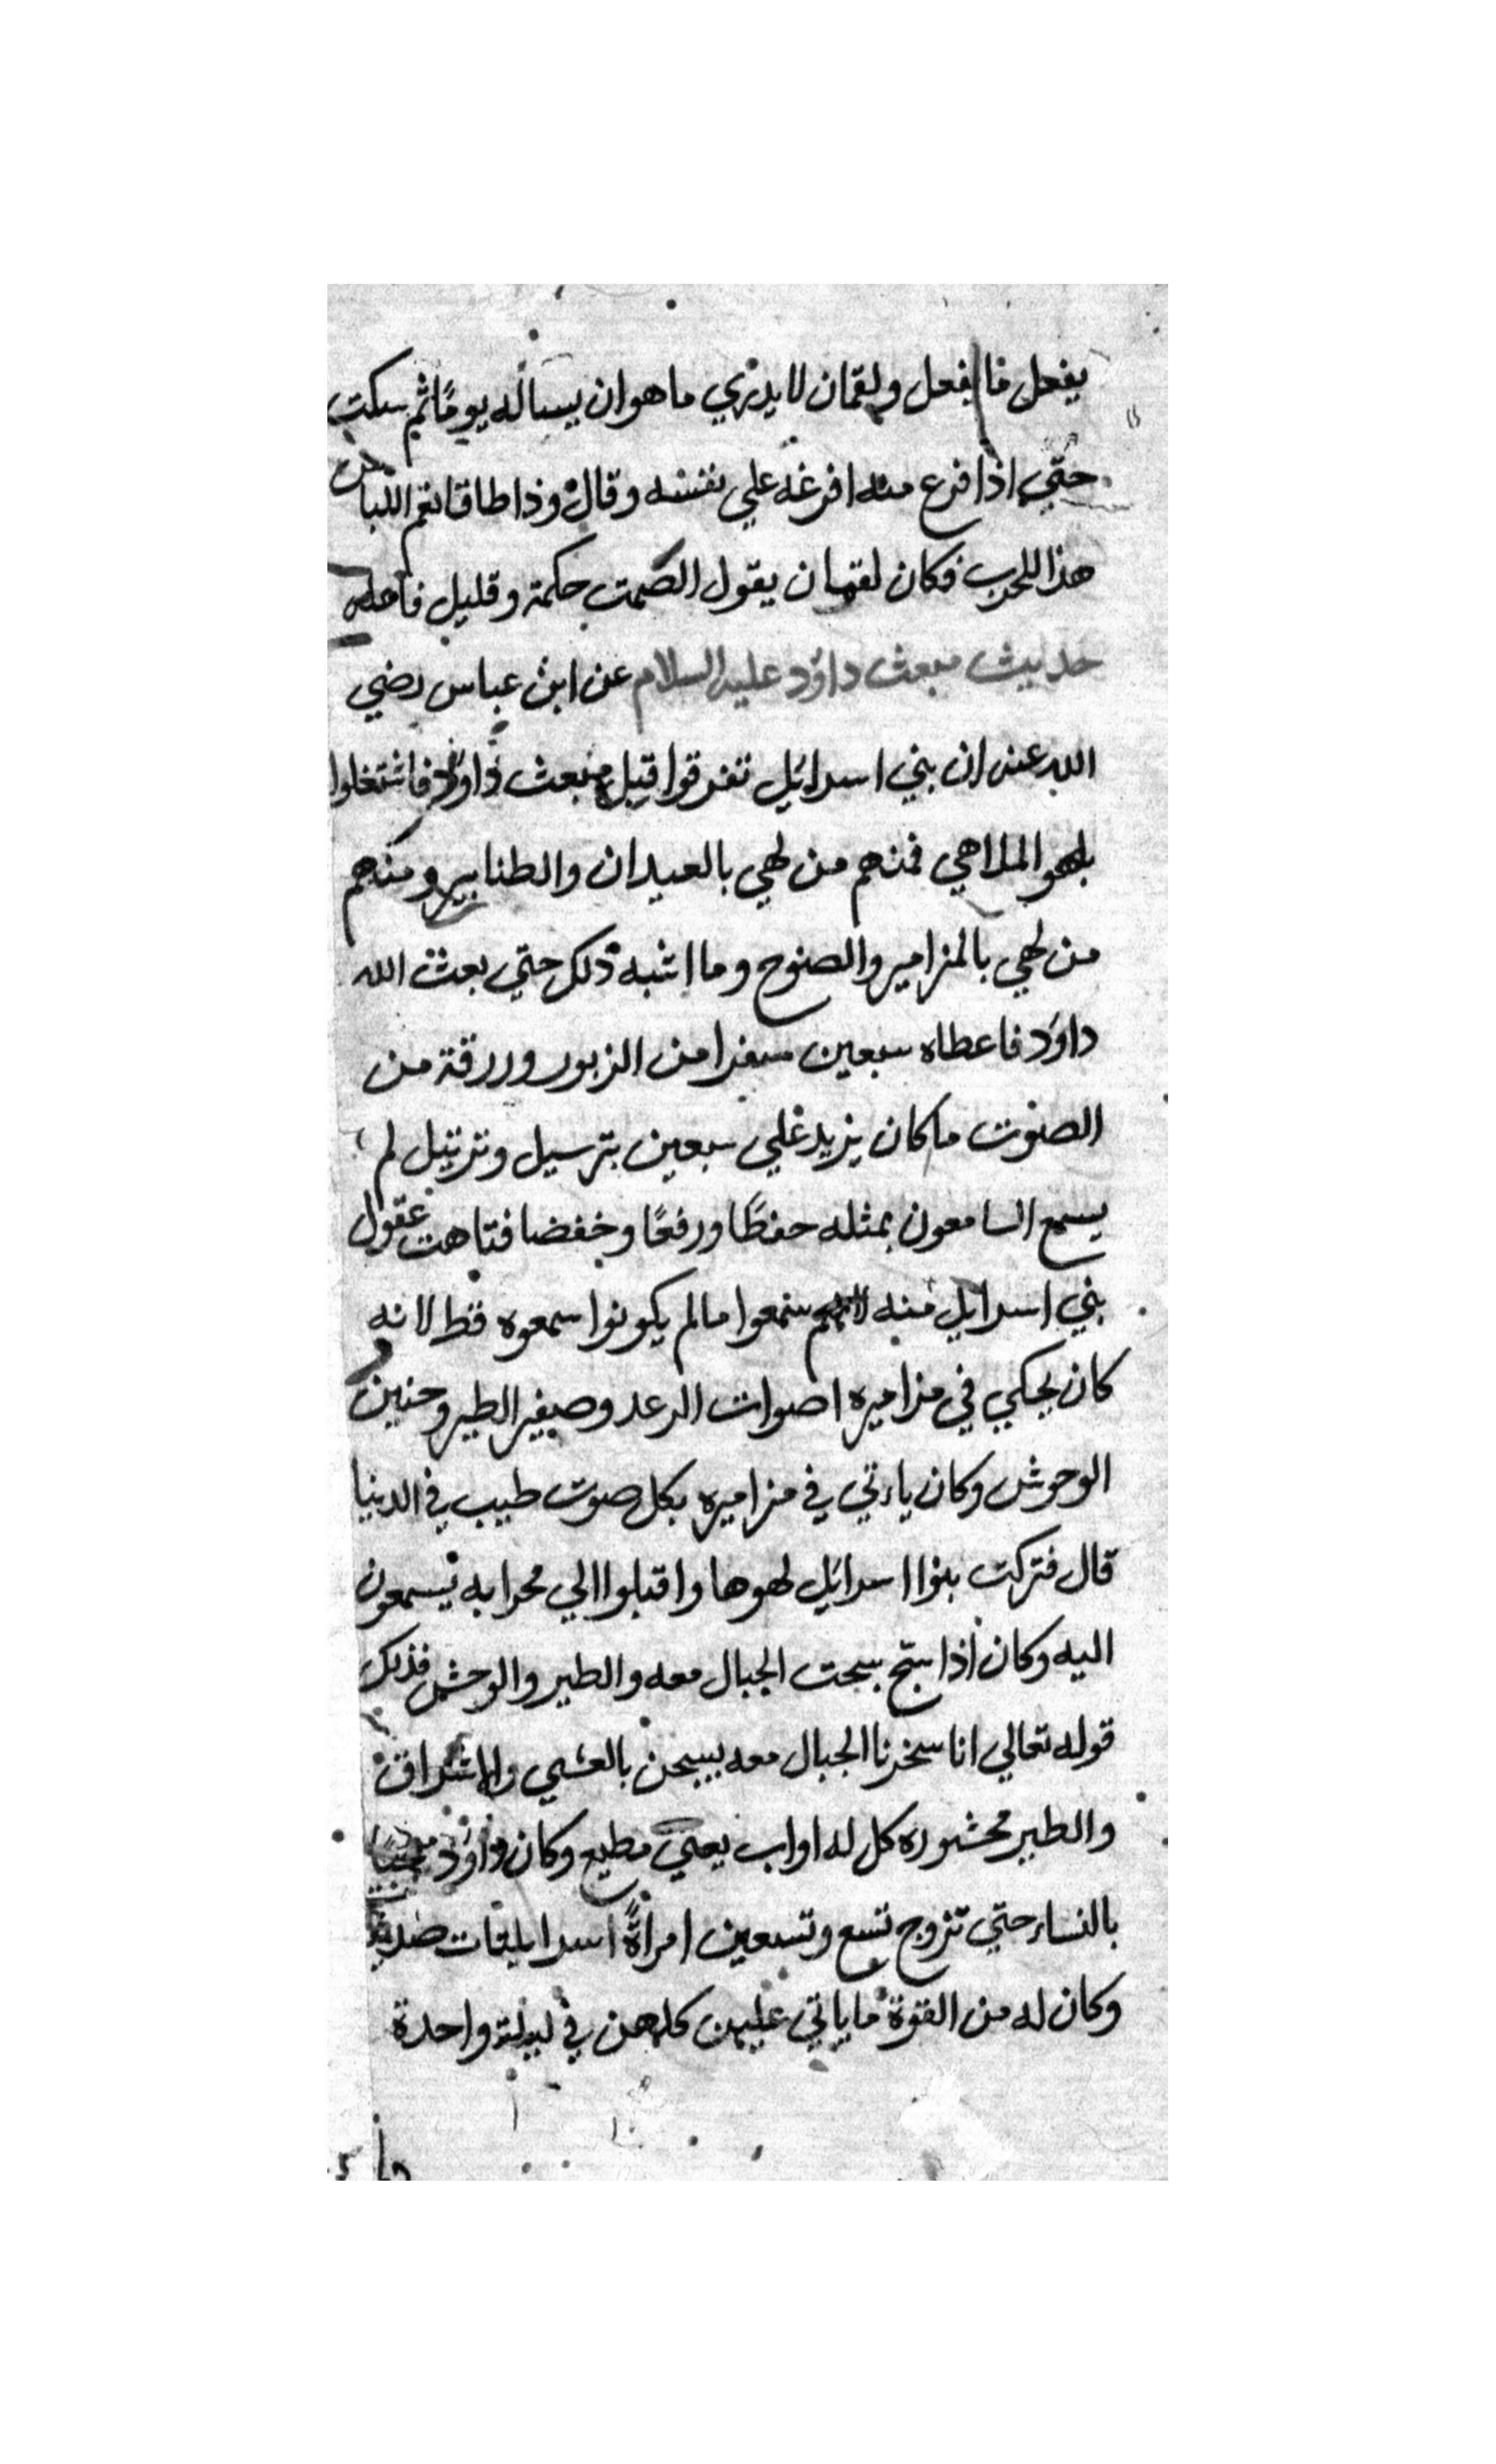 يفعل فا يفعل ولقمان لا يدري ما هو ان يساله يومًا ثم سكت
حتي اذا فرغ منه افرغه علي نفسه وقال وذا طاقا نعم اللباس
هذا للحرب فكان لقمان يقول الصمت حكمة وقليل فاعله
حديث مبعث داؤد عليه السلام عن ابن عباس رضي
الله عنه ان بني اسرائيل تفرقوا قبل مبعث داؤد فاشتغلوا
بلهو الملاهي فمنهم من لهي بالعيدان والطنابير ومنهم
من لهي بالمزامير والصنوج وما اشبه ذلك حتي بعث الله
داؤد فاعطاه سبعين سفرا من الزبور ورزقة من
الصوت ما كان يزيد علي سبعين بترسيل وترتيل لم
يسمع السامعون بمثله حفظًا ورفعًا وخفضا فتاهت عقول
بني اسرايل منه لانهم سمعوا مالم يكونوا سمعوه قط لانه
كان يحكي في مزاميره اصوات الرعد وصفير الطير وحنين
الوحوش وكان ياءتي في مزاميره بكل صوت طيب في الدنيا
قال فتركت بنوا اسرائيل لهوها واقبلوا الي محرابه يسمعون
اليه وكان اذا سبح سبحت الجبال معه والطير والوحش فذلك
قوله تعالي انا سخرنا الجبال معه يسبحن بالعشي والاشراق
والطير محشوره كل له اواب يعني مطيع وكان داؤد
بالنساء حتي تزوج تسع وتسعين امراةً اسرايليات
وكان له من القوة ما ياتي عليهن كلهن في ليلة واحدة